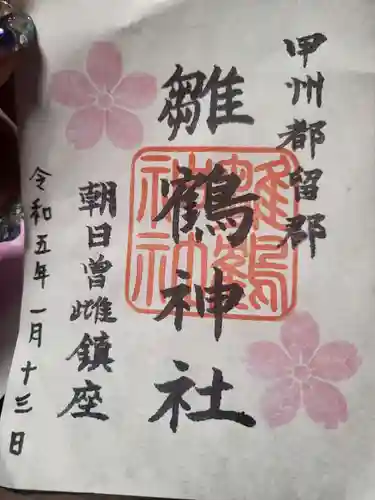 甲州都留郡
雛鶴神社
朝日曽雌鎮座
令和五年一月十三日
雛鶴神社